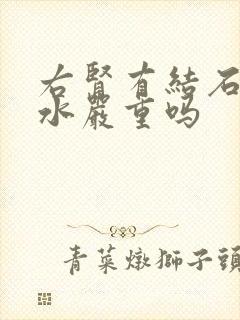 右腎有結石
水嚴重嗎
青菜燉獅子頭